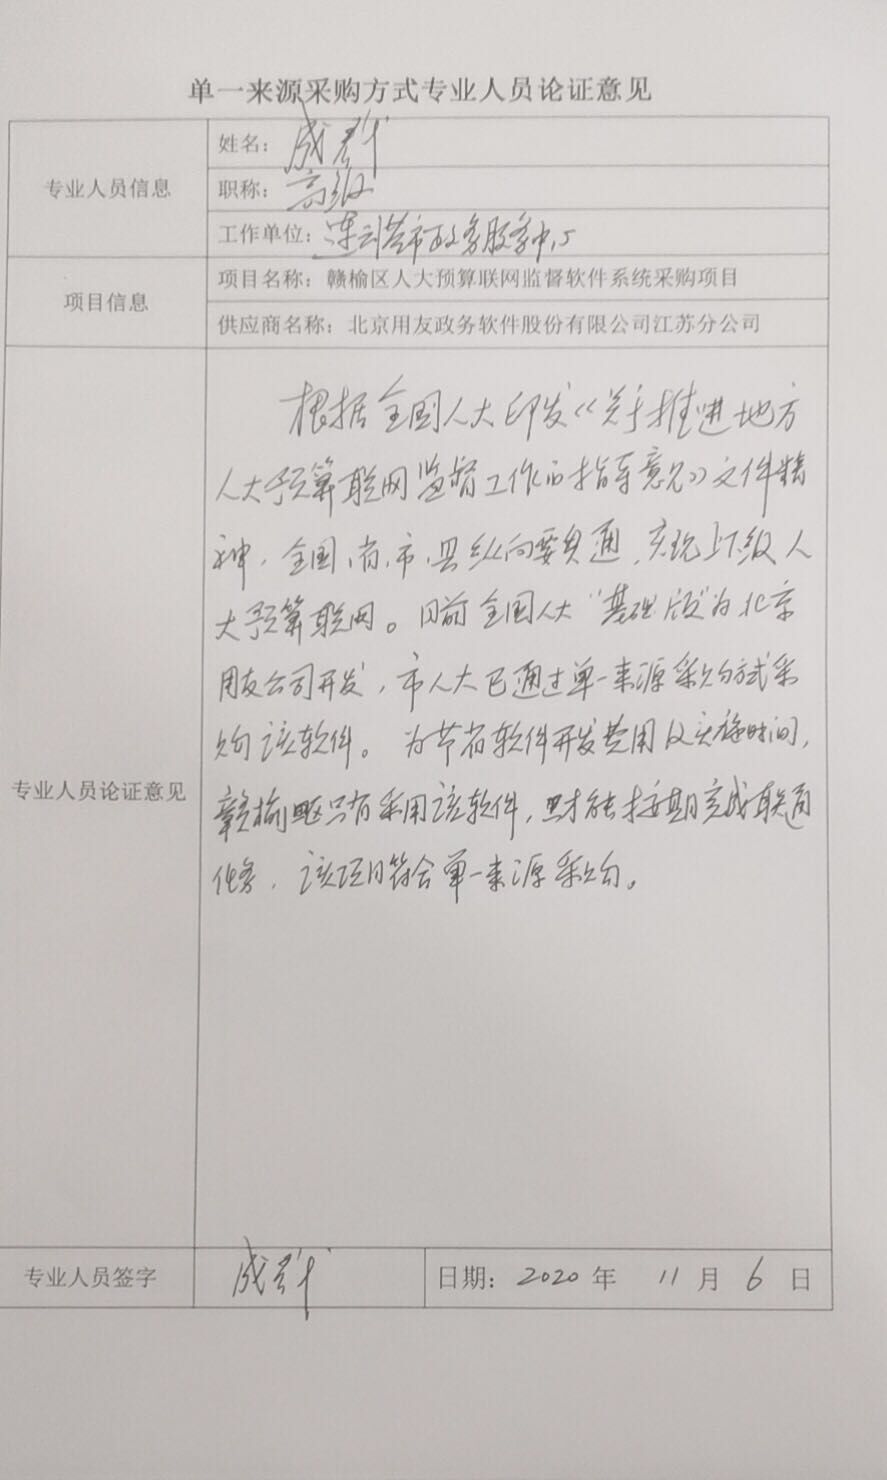 单一来源采购方式专业人员论证意见
专业人员信息
姓名：成群
职称：高级
工作单位：连云港市政务服务中心
项目信息
项目名称：赣榆区人大预算联网监督软件系统采购项目
供应商名称：北京用友政务软件股份有限公司江苏分公司
专业人员论证意见
根据全国人大印发《关于推进地方
人大预算联网监督工作的指导意见》文件精
神，全国、省、市、县纵向要贯通，实现上下级人
大预算联网。目前全国人大“基础版”为北京
用友公司开发，市人大已通过单一来源采购方式采
购该软件。为节省软件开发费用及实施时间，
赣榆区只有采用该软件，才能按期完成联通
任务，该项目符合单一来源采购。
专业人员签字
成群
日期：2020年11月6日